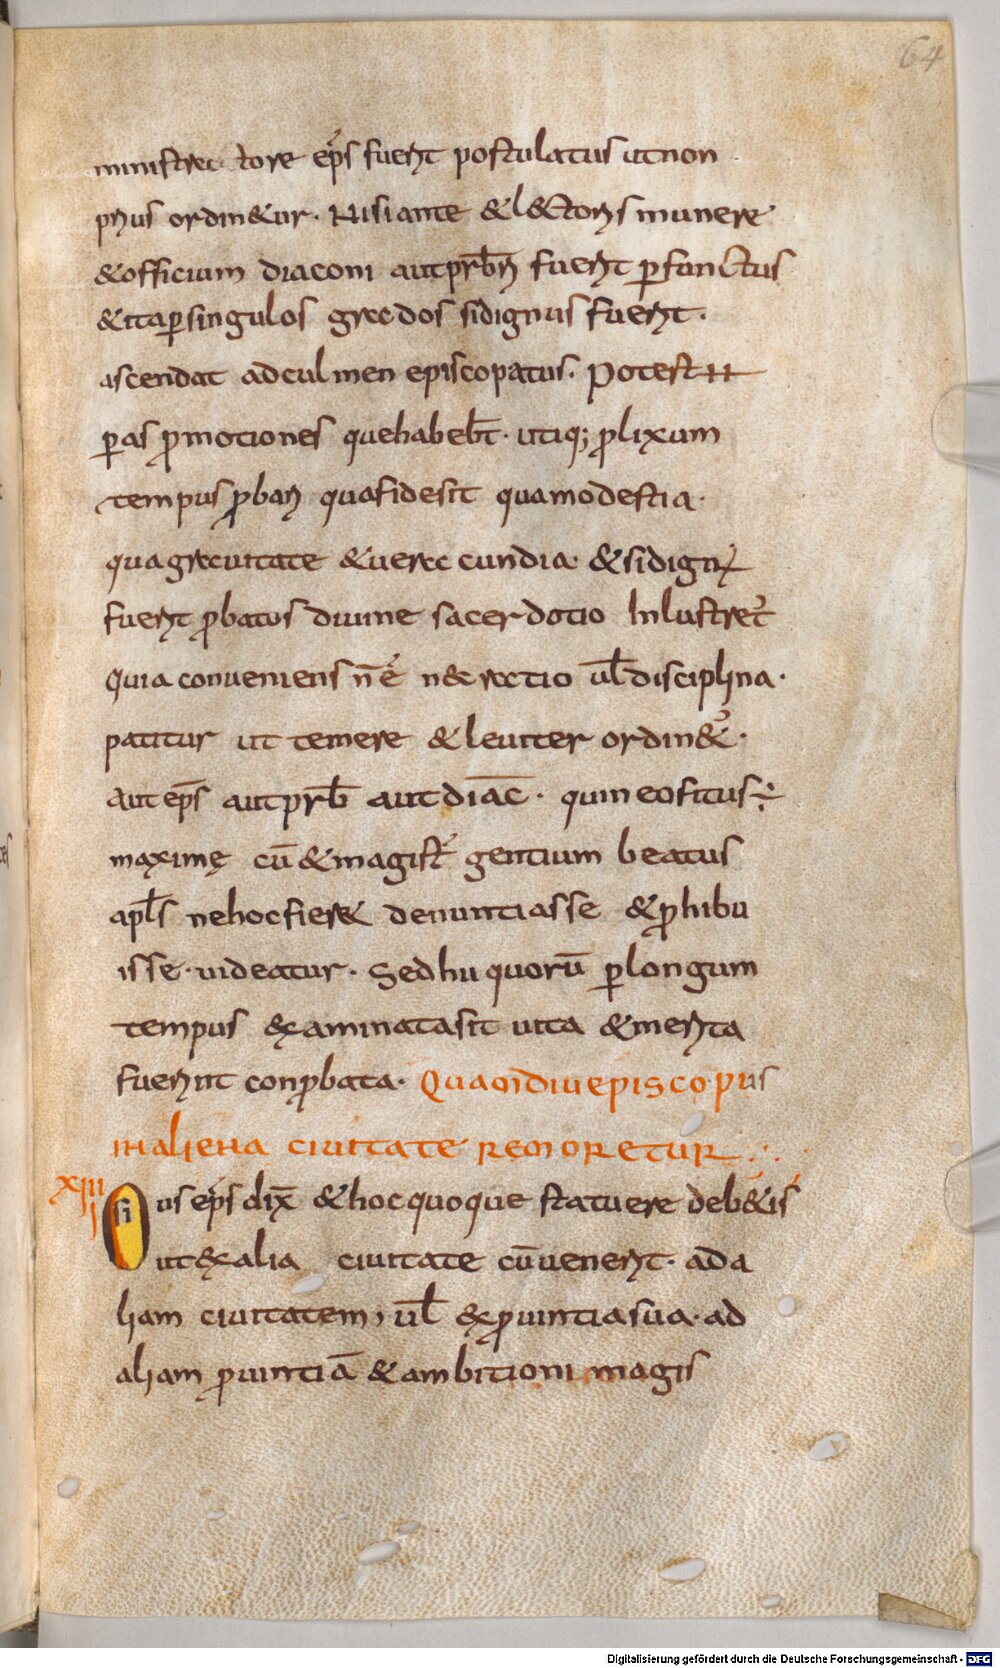 64
ministra tore ep̄s fuerit postulatus ut non
prius ordin&ur. Nisi ante & l&toris munere
& officium diaconi aut prb̄ri fuerit ꝑfunctus
& ita ꝑ singulos gradus si dignus fuerit.
ascendat ad culmen episcopatus. Potest N
ꝑ as ꝓmotiones que habeb̄t. utiq; ꝓlixum
tempus ꝓbari qua fide sit qua modestia.
qua gravitate & uerecundia. & si dignus
fuerit ꝓbatus divine sacerdotio Inlustret̄
Quia conveniens n̄ ē nec ratio ul̄ disciplina.
patitur ut temere & leviter ordin&.
Aut ep̄s aut prb̄ aut diāc. qui neofitus ÷
maximę cū & magist̄ gentium beatus
apl̄s ne hoc fier& denuntiasse & ꝓhibu
isse. videatur. Sed hii quorū ꝑ longum
tempus examinata sit vita & merita
fuerint conꝓbata. Quamdiu episcopus
IN alieNa civitate remoretur
XIII
I
Osius ep̄s dix̄ & hoc quoque statuere deb&is
ut ex alia civitate cū venerit. ad a
liam civitatem, ul̄ ex ꝓvintia sua. ad
aliam ꝓvintiā & ambitioni magis
Digitalisierung gefördert durch die Deutsche Forschungsgemeinschaft - DFG